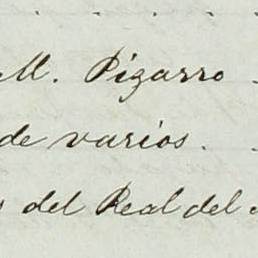 M. Pizarro .
de varios. .
del Real del